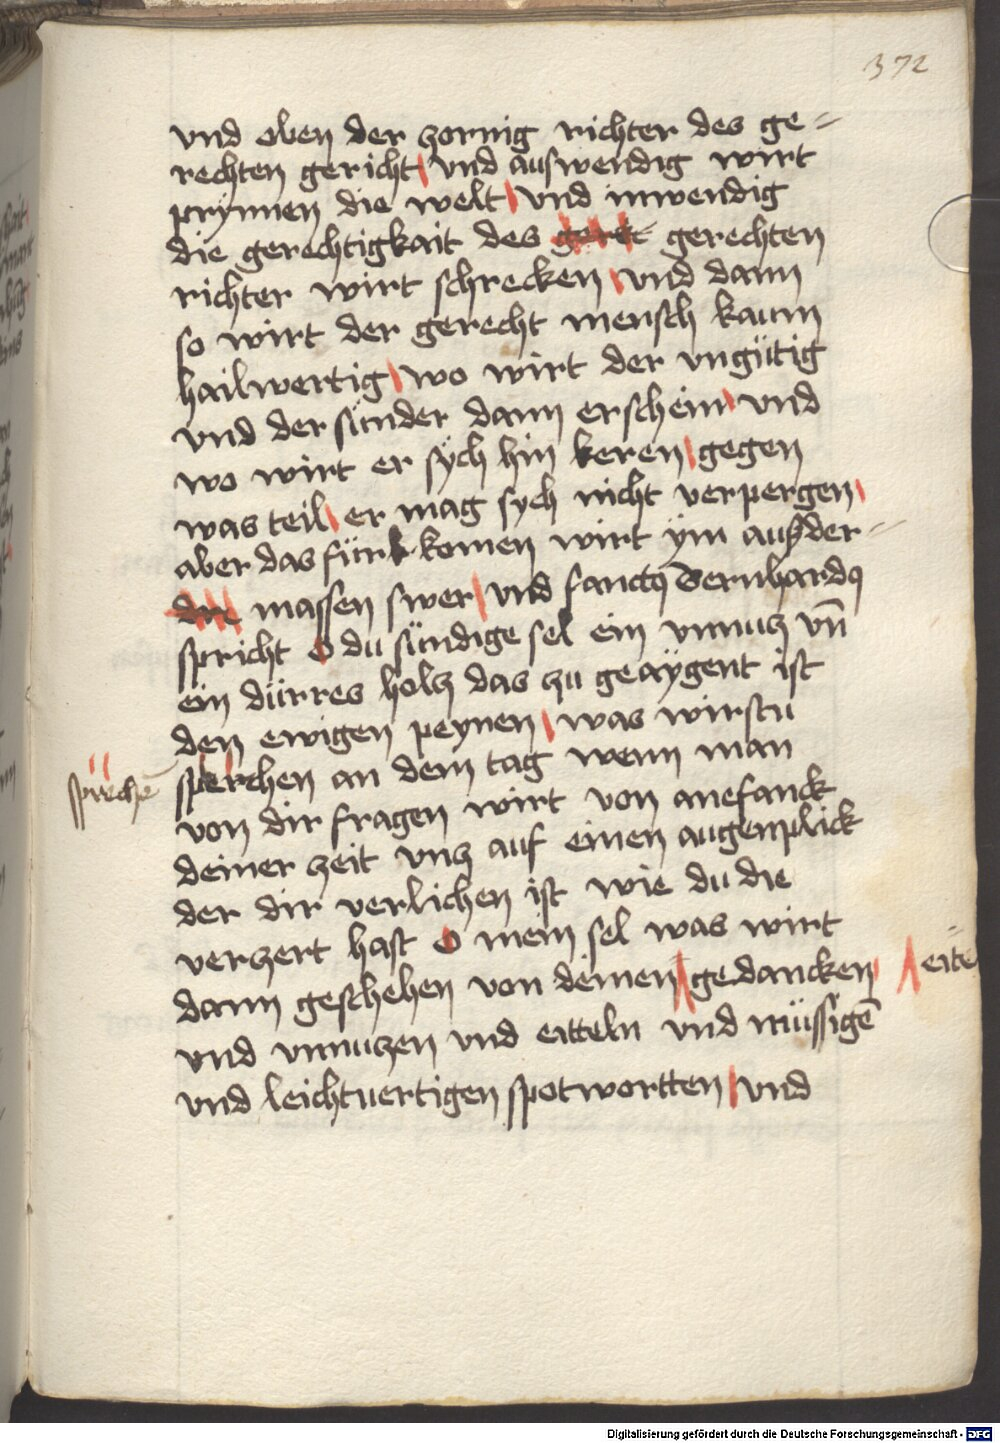 372
vnd oben der zornig richter des ge-
rechten gericht vnd auswendig wirt
prynnen die welt vnd inwendig
die gerechtigkait des gerecht gerechten
richter wirt schrecken vnd dann
so wirt der gerecht mensch kaum
hailwertig wo wirt der vngütig
vnd der sünder dann erschein vnd
wo wirt er sÿch hin keren gegen
was teil er mag sych nicht verpergen
aber das fürkomen wirt ÿm ausder-
dre massen swer vnd sanctꝰ Bernhardꝰ
spricht O du sündige sel ein vnnucz vn̄
ein dürres holcz das zu geaÿgent ist
den ewigen peynen was wirstu
spreche̅ sperchen an dem tag wenn man
von dir fragen wirt von anefanck
deiner zeit vncz auf einen augenplick
der dir verlichen ist wie du die
verzert hast O mein sel was wirt
dann geschehen von deinen gedancken eite
vnd vnnuczen vnd eitteln vnd müssige̅
vnd leichtuertigen spotwortten vnd
Digitalisierung gefördert durch die Deutsche Forschungsgemeinschaft - DFG